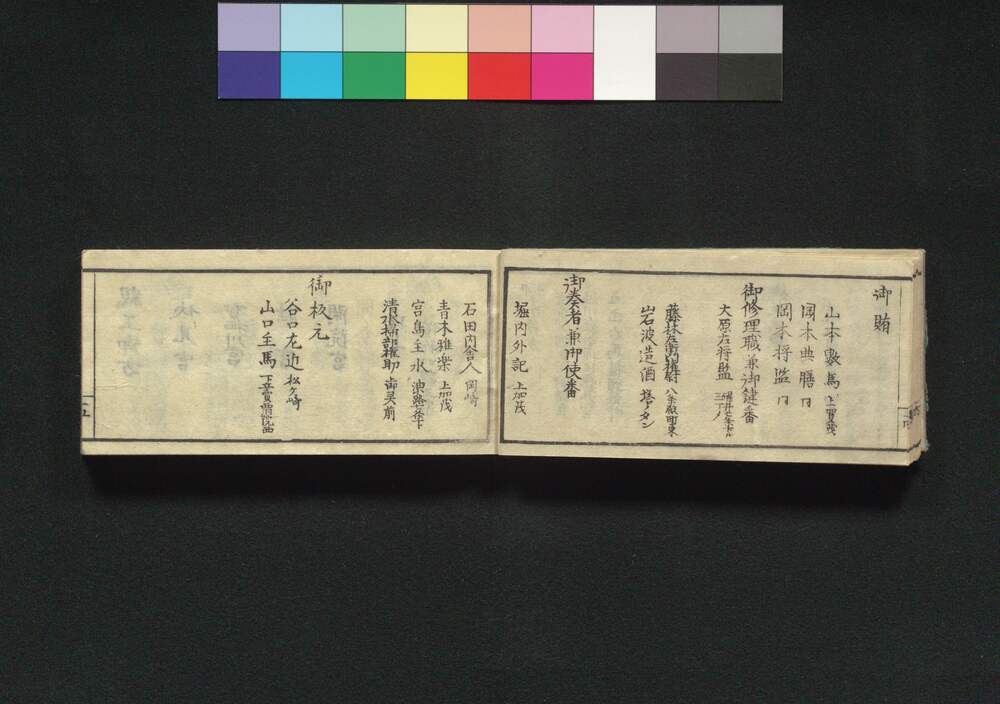 御賄
山本數馬 上賀茂
岡本典膳 同
岡本将監 同
御修理職兼御鍵番
大原左将監
藤林左衛門権尉 八条殿町東
岩波造酒 塔ノタン
御奏者兼御使番
堀内外記 上加茂
石田内舎人 岡崎
青木雅楽 上加茂
宮島主水
清水掃部権助 御具前
御板元
谷口左近 松ケ崎
山口主馬